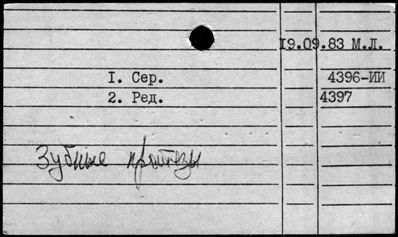 19.09.83 М.Л.
1. Сер. 4396-ИИ
2. Ред. 4397
Зубные протезы